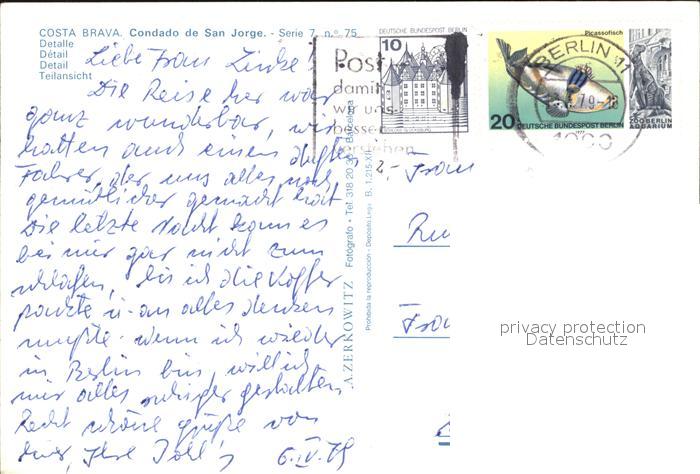 COSTA BRAVA. Condado de San Jorge. - Serie 7, n.° 75
Detalle
Détail
Detail
Teilansicht
Liebe Frau
Die Reise her war
ganz wunderbar, wir
hatten auch einen dufte
Fahrer, der uns alles noch
gemütlicher gemacht hat
Die letzte Nacht kam es
bei mir gar nicht zum
schlafen, bis ich die Koffer
packte u. an alles denken
mußte. wenn ich wieder
in Berlin bin, will ich
mir alles ruhiger gestalten
Recht schöne Grüße von
Ihrer, Ilse
A. ZERKOWITZ Fotógrafo • Tel. 318 20 30 Barcelona
Prohibida la reproducción - Depósito Lega B. 1.215-XI
DEUTSCHE BUNDESPOST BERLIN
10
Post
damit
wir uns
besser
verstehen
Picassofisch
20 DEUTSCHE BUNDESPOST BERLIN
ZOO BERLIN
AQUARIUM
BERLIN 11
79-18
1000
Frau
Ru
Fra
privacy protection
Datenschutz